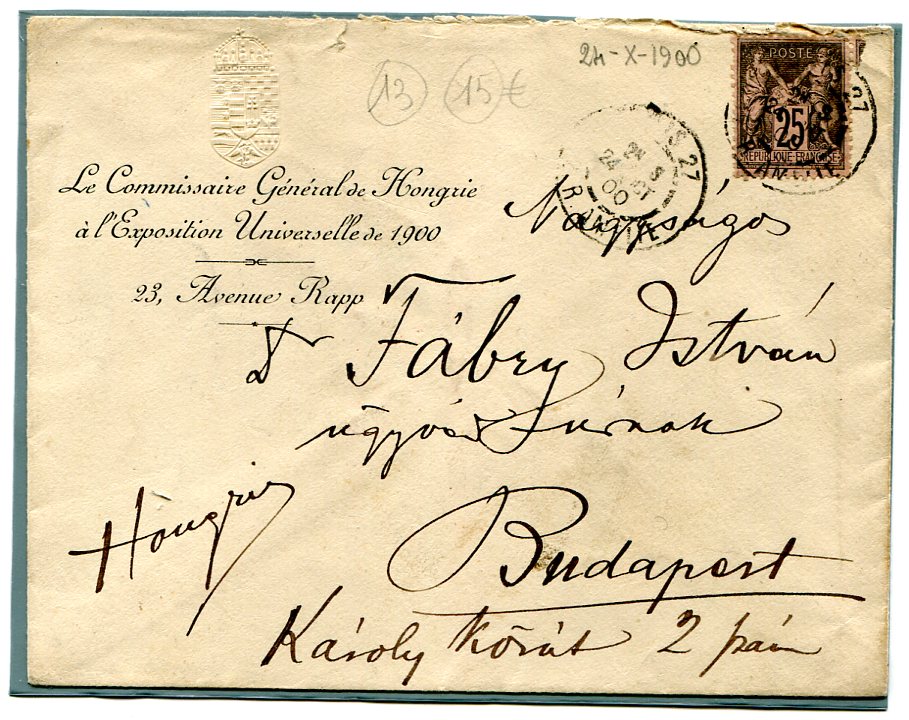 24-X-1900
13 15€
POSTE
25
REPUBLIQUE FRANÇAISE
27
PARIS 27
24 OCT
00
Le Commissaire Général de Hongrie
à l'Exposition Universelle de 1900
23, Avenue Rapp
Nagyságos
Dr Fábry István
ügyvéd Úrnak
Hongrie
Budapest
Károly körút 2 szám